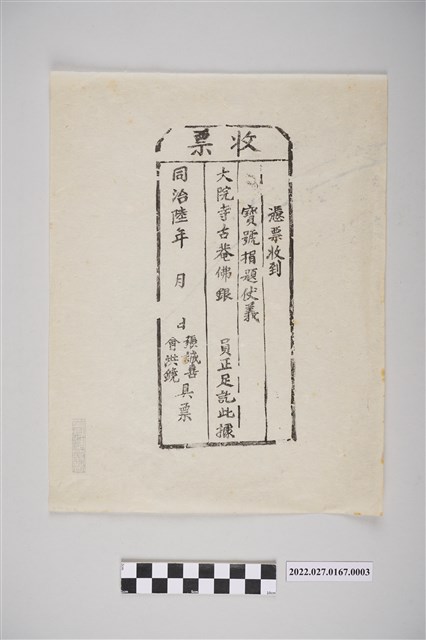 收票
憑票收到
寶號捐題仗義
大院寺古菴佛銀 員正足訖此據
同治陸年 月 日
張誠喜
會洪鐃
具票
2022.027.0167.0003